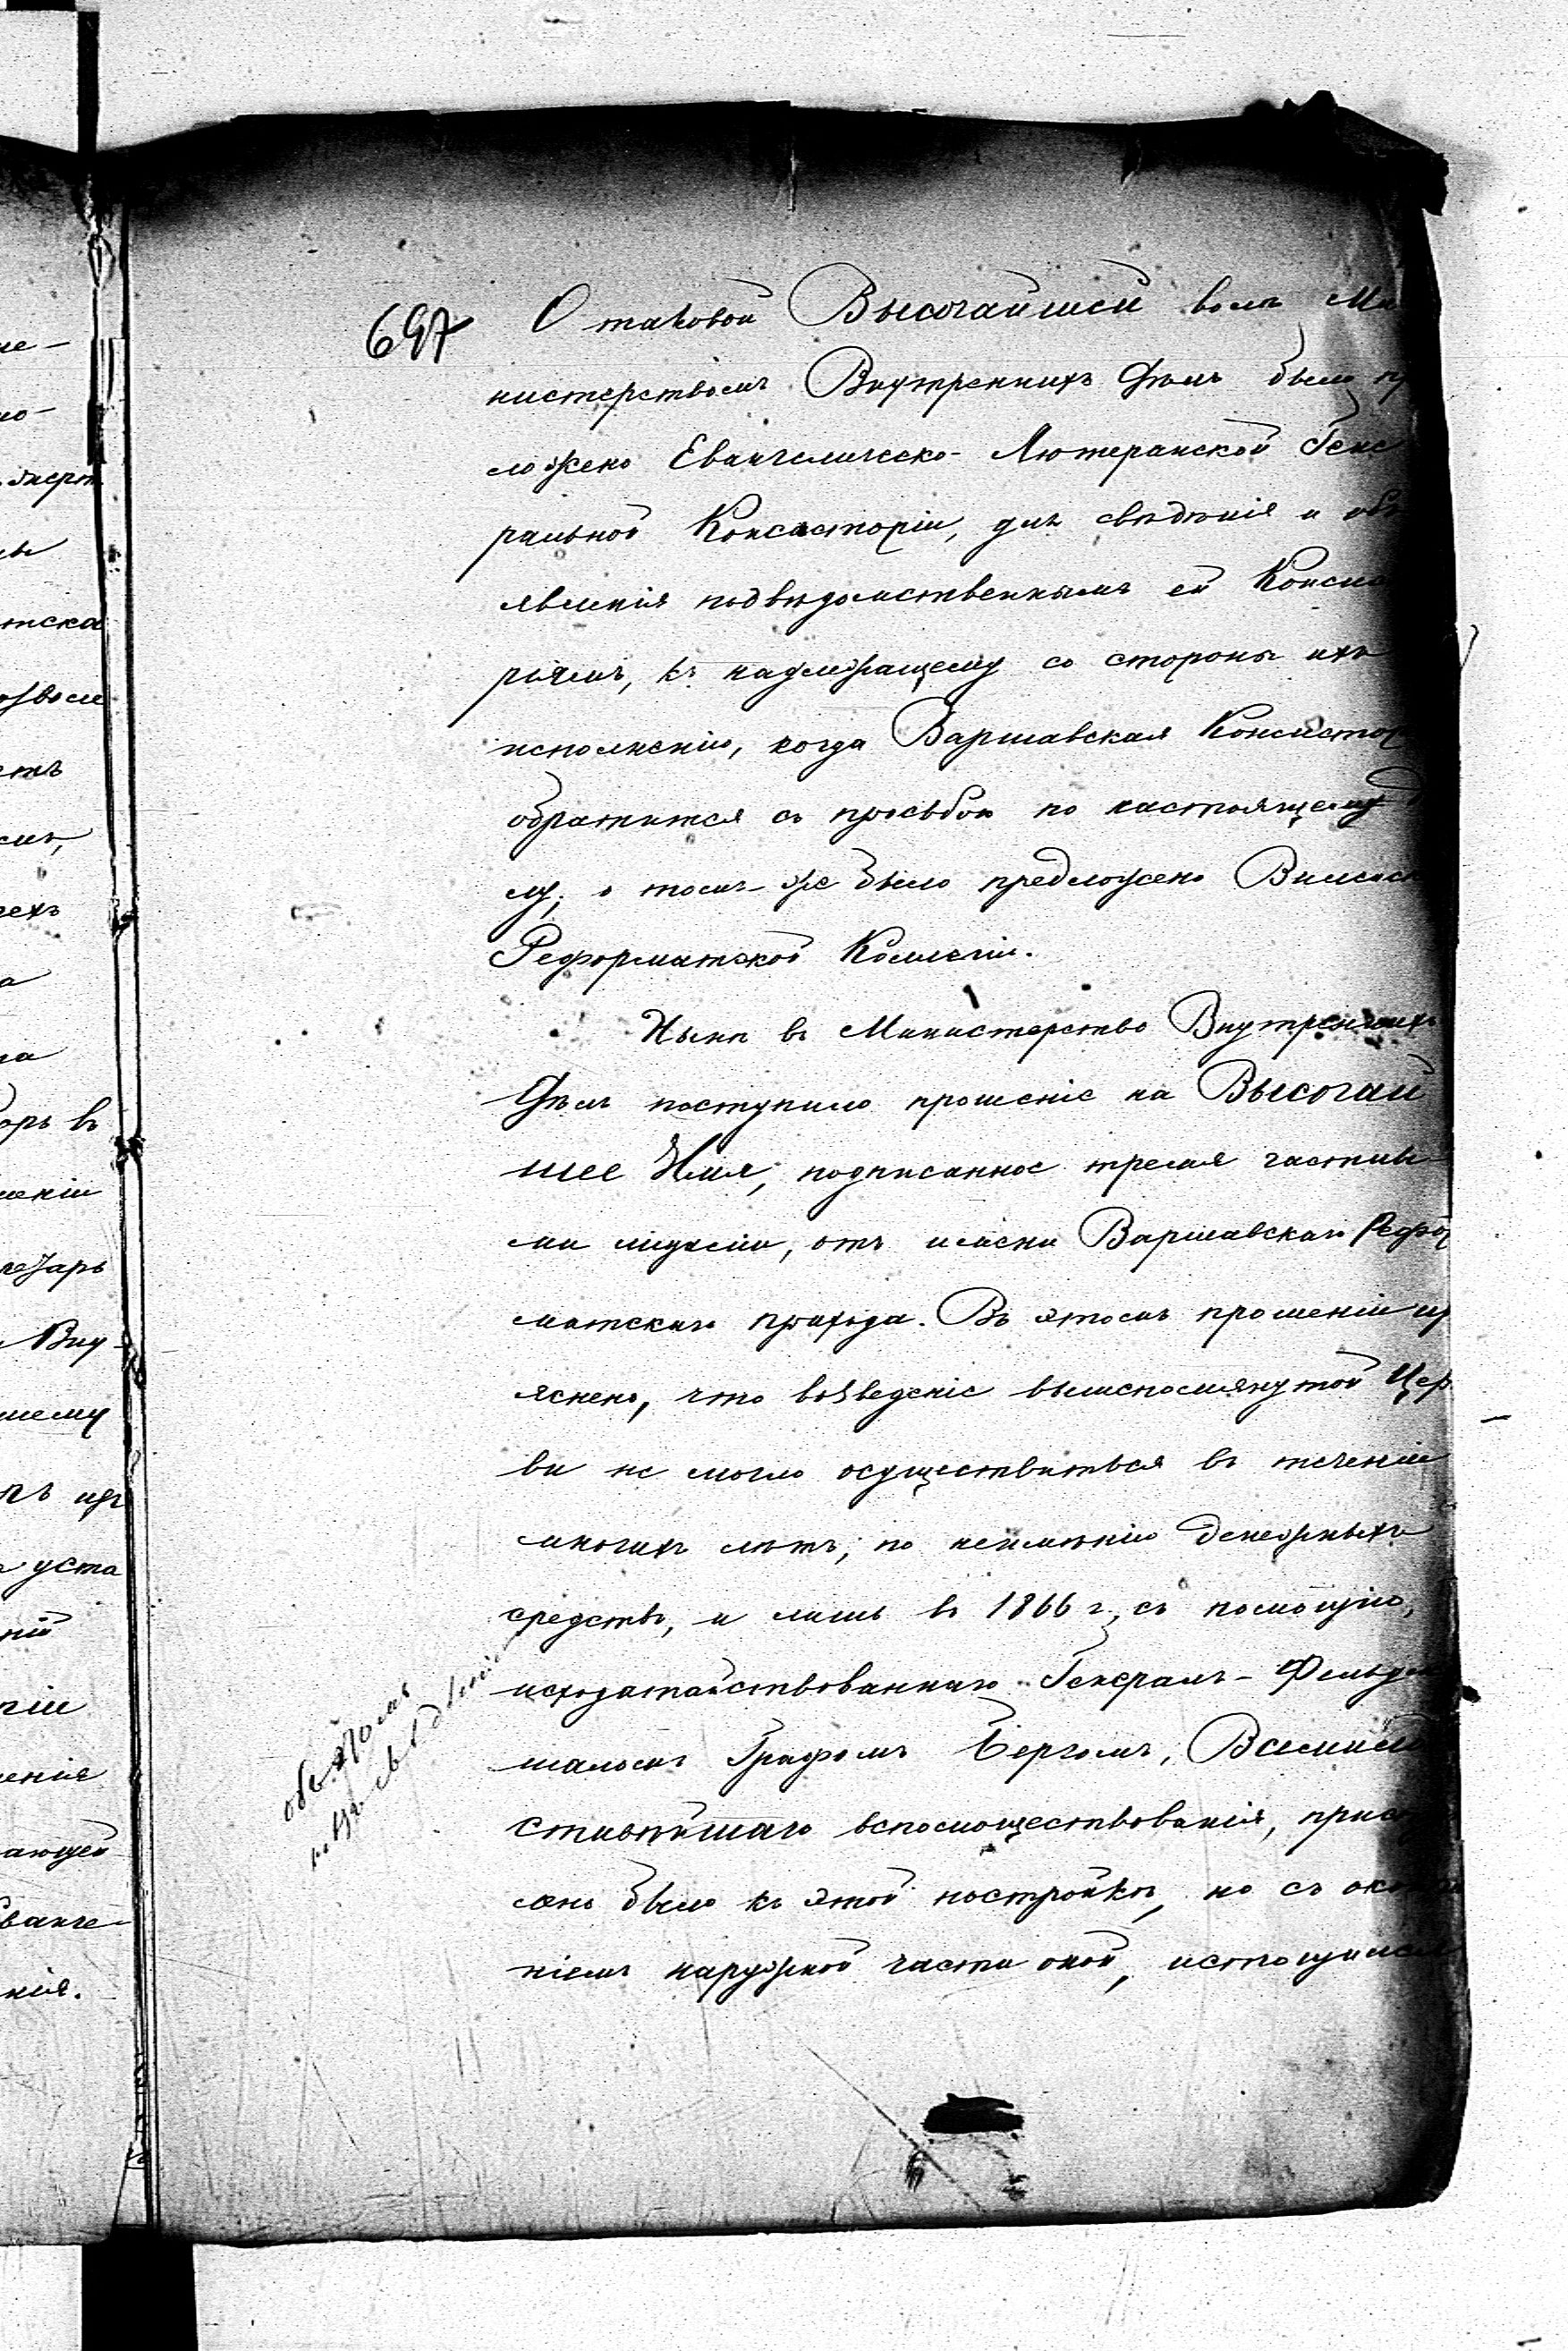 697
О таковой Высочайшей волѣ Ми
нистерствомъ Внутреннихъ Дѣлъ было пр
ложено Евангелическо-Лютеранской Гене
ральной Консисторіи, для свѣдѣнія и объ
явленія подвѣдомственнымъ ей Консисто
ріямъ, къ надлежащему со стороны ихъ
исполненію, когда Варшавская Консистор
обратится съ просьбою по настоящему д
лу; о томъ-же было предложено Виленск
Реформатской Коллегіи.
Нынѣ въ Министерство Внутреннихъ
Дѣлъ поступило прошеніе на Высочай
шее Имя, подписанное тремя частны
ми лицами, отъ имени Варшавскаго Рефор
матскаго прихода. Въ этомъ прошеніи из
яснено, что возведеніе вышепомянутой Цер
ви не могло осуществиться въ теченіи
многихъ лѣтъ, по неимѣнію денежныхъ
средствъ, и лишь въ 1866 г., съ помощію,
исходатайствованнаго Генералъ-Фельдм
шаломъ Графомъ Бергомъ, Всемило
стивѣйшаго вспомоществованія, прист
лено было къ этой постройкѣ, но съ окон
ніемъ наружной части оной, истощился
ме-
но-
тска
оръ въ
шеніи
Вну-
шему
уста
ній
ченія
ающей
ванге-
нія.